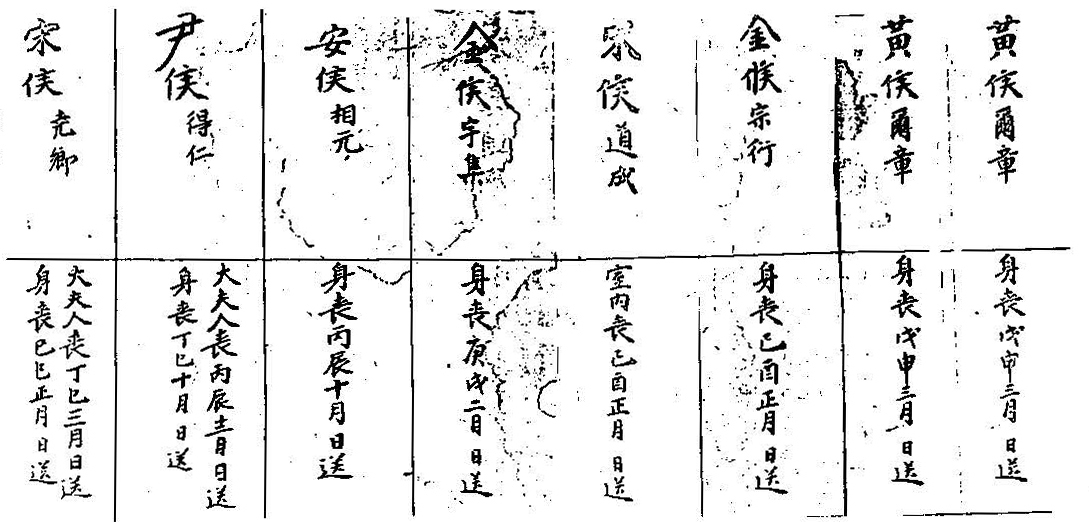 黃侯爾章
身喪戊申三月 日送
黃侯爾章
身喪戊申三月 日送
金候宗行
身喪己酉正月 日送
侯道成
室內喪己酉正月 日送
金侯宇集
身喪庚戌二月 日送
安侯相元
身喪丙辰十月 日送
尹侯得仁
大夫人喪丙辰十二月 日送
身喪丁巳十月 日送
宋侯堯卿
大夫人喪丁巳三月 日送
身喪己巳正月 日送